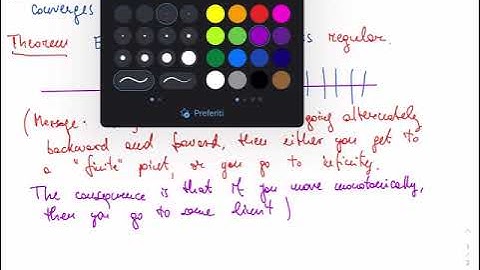 converges
Theorem E is regular.
(Message. going alternately
backward and forward, then either you get to
a "finite" point, or you go to infinity.
The consequence is that if you move monotonically,
then you go to some limit)
Preferiti